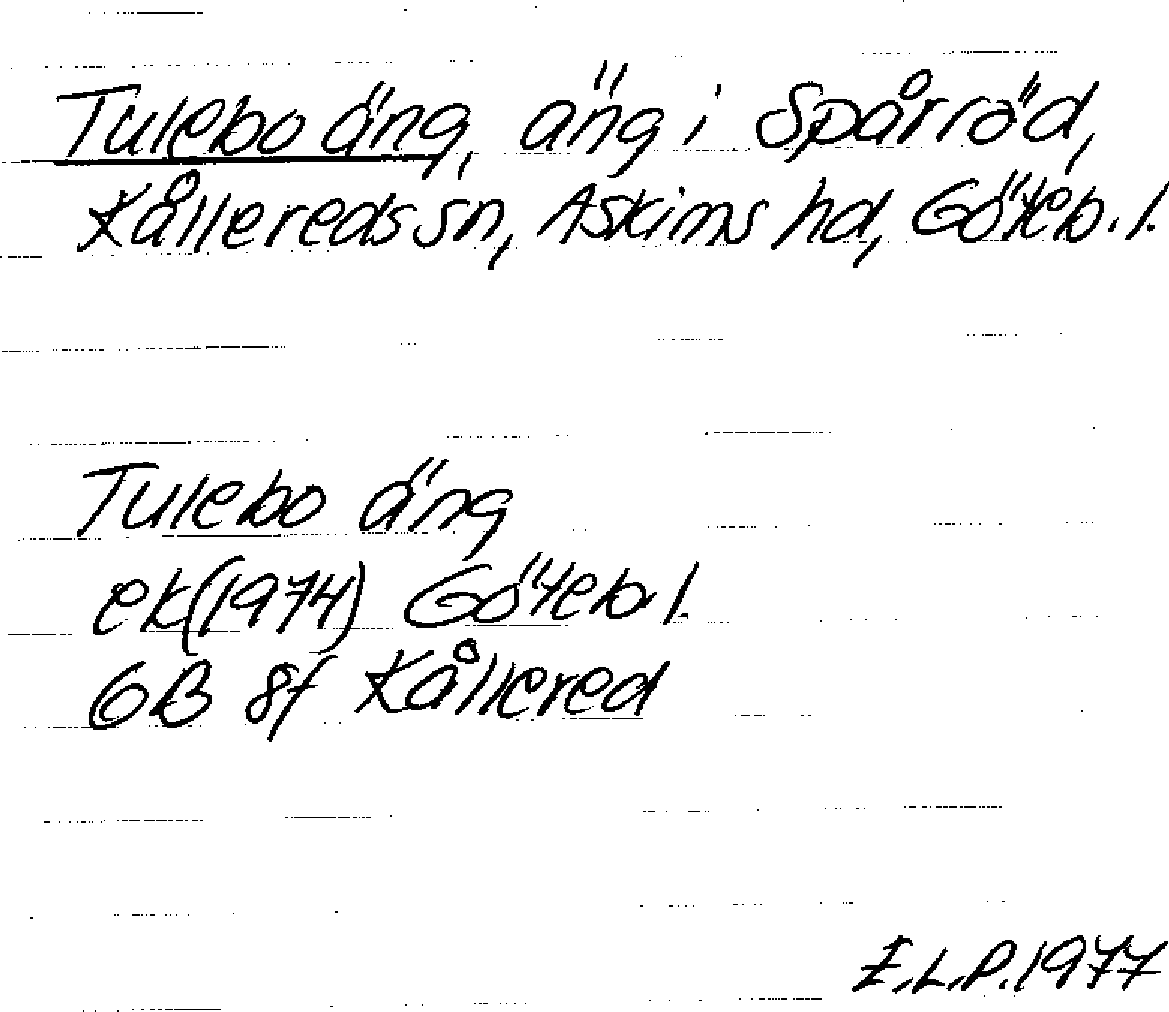 Tulebo äng, äng i Spårröd,
Kållereds sn, Askims hd, Göteb. l.
Tulebo äng
ek(1974) Göteb. l.
GB 8f Kållered
E.L.P. 1977